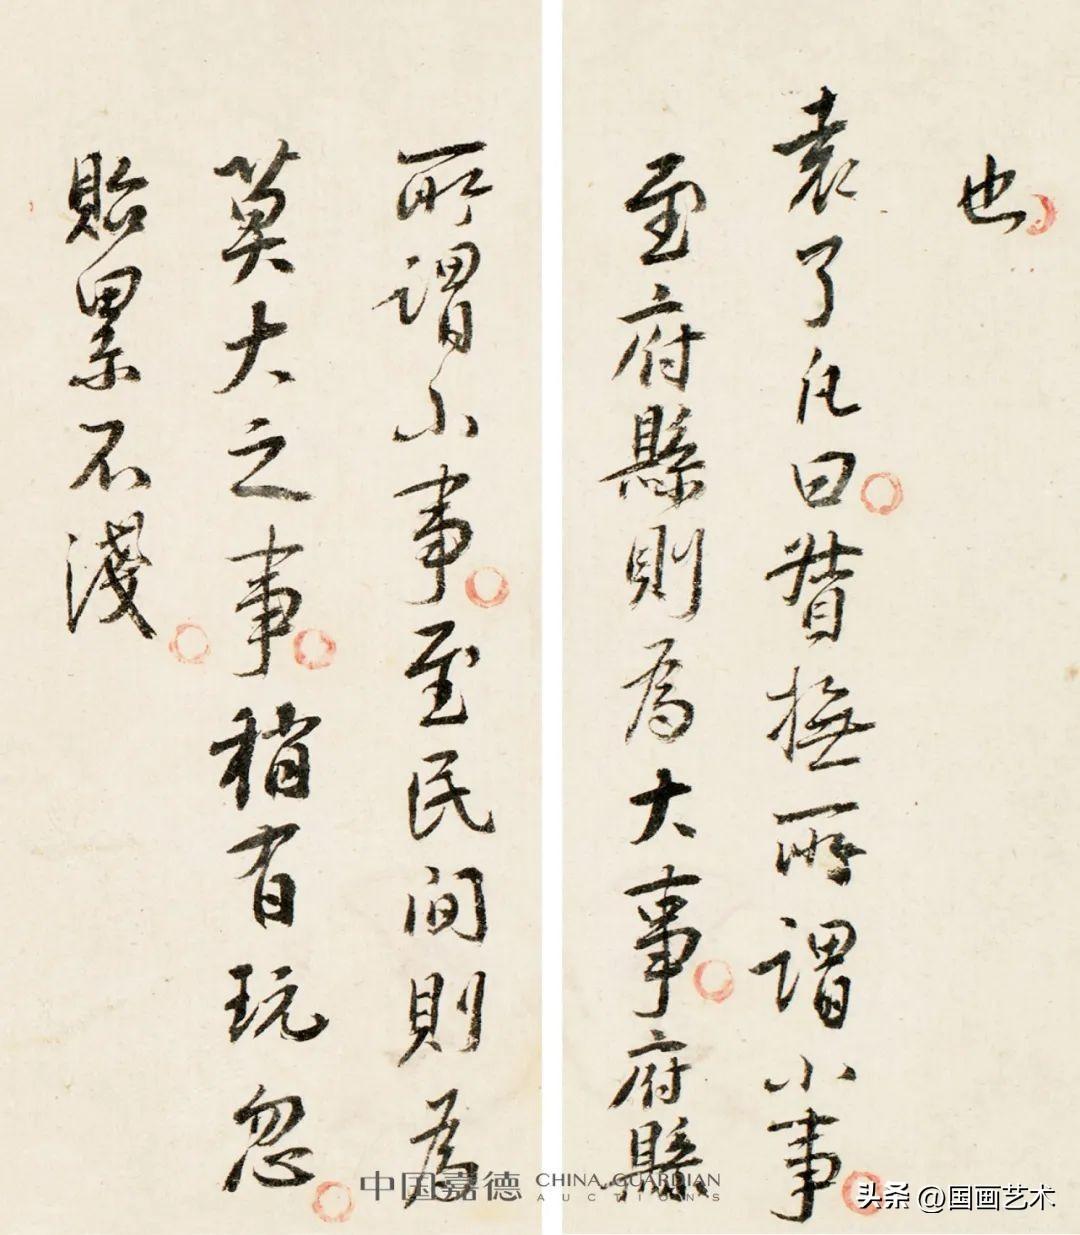 也
袁了凡曰督撫所謂小事
至府縣則為大事府縣
所謂小事至民间則為
莫大之事稍有玩忽
貽累不淺
中国嘉德 CHINA GUARDIAN AUCTIONS
头条 @国画艺术